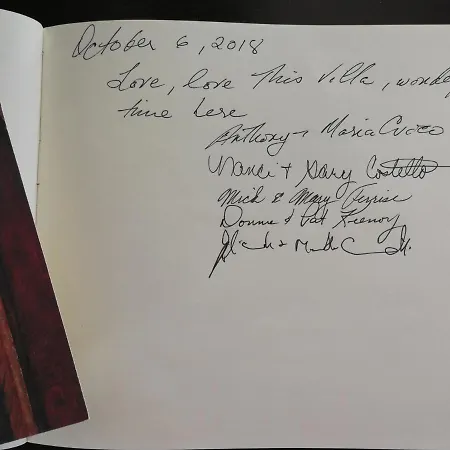 October 6, 2018
Love, love this Villa,
time here
Anthony + Maria Cuoco
Nanci & Gary Costello
Mick & Mary
Donna & Pat